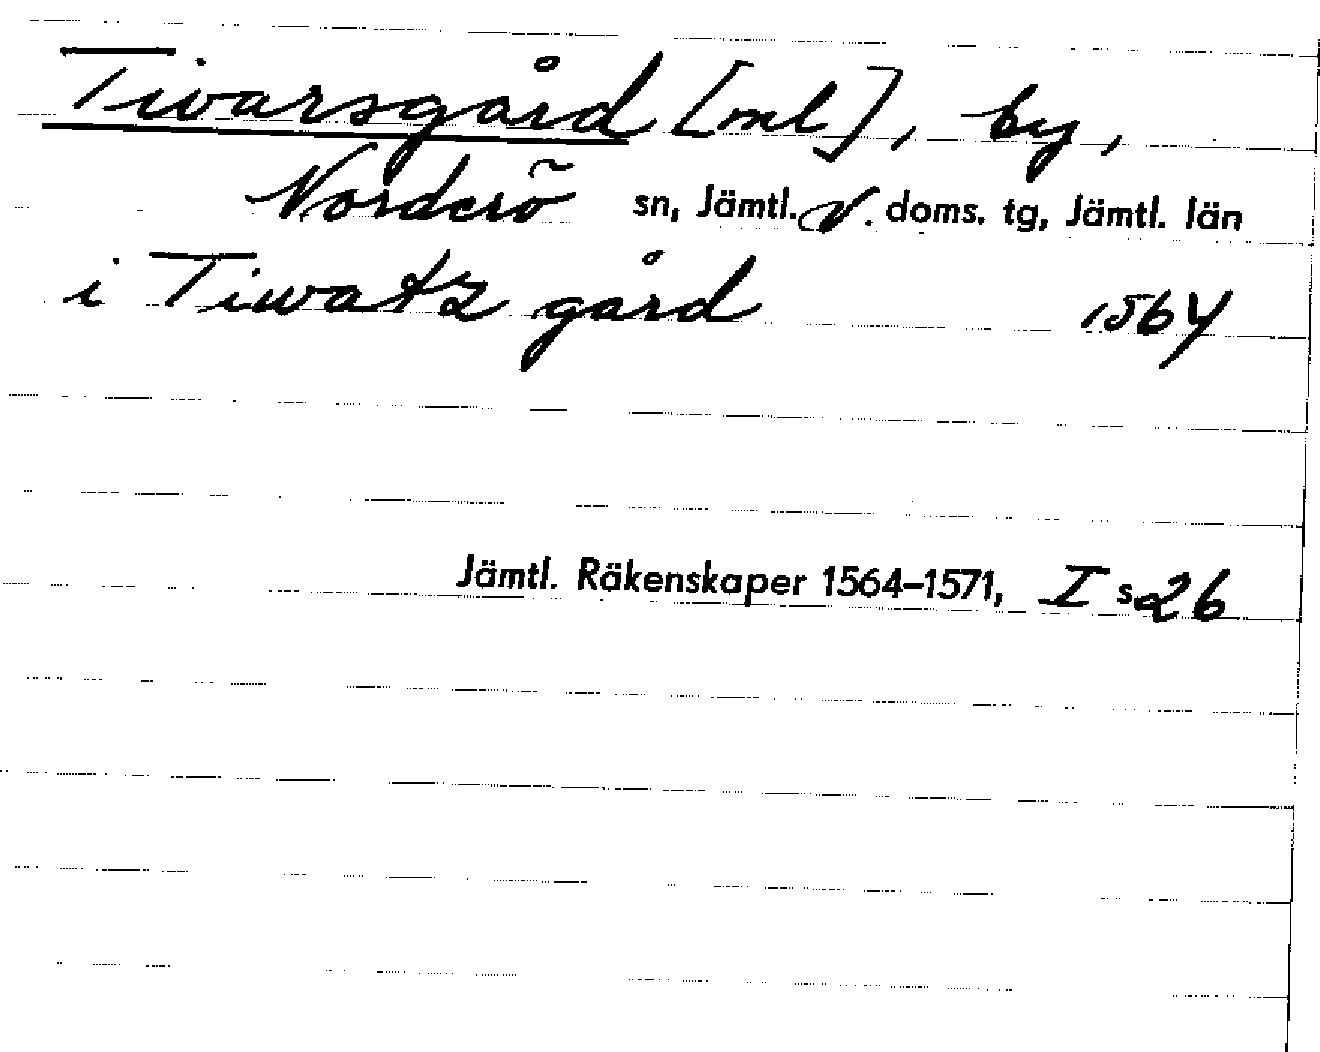 Tivarsgård [ml], by,
Norderö sn, Jämtl. V. doms. tg, Jämtl. län
i Tiwatz gård 1564
Jämtl. Räkenskaper 1564–1571, I s 26